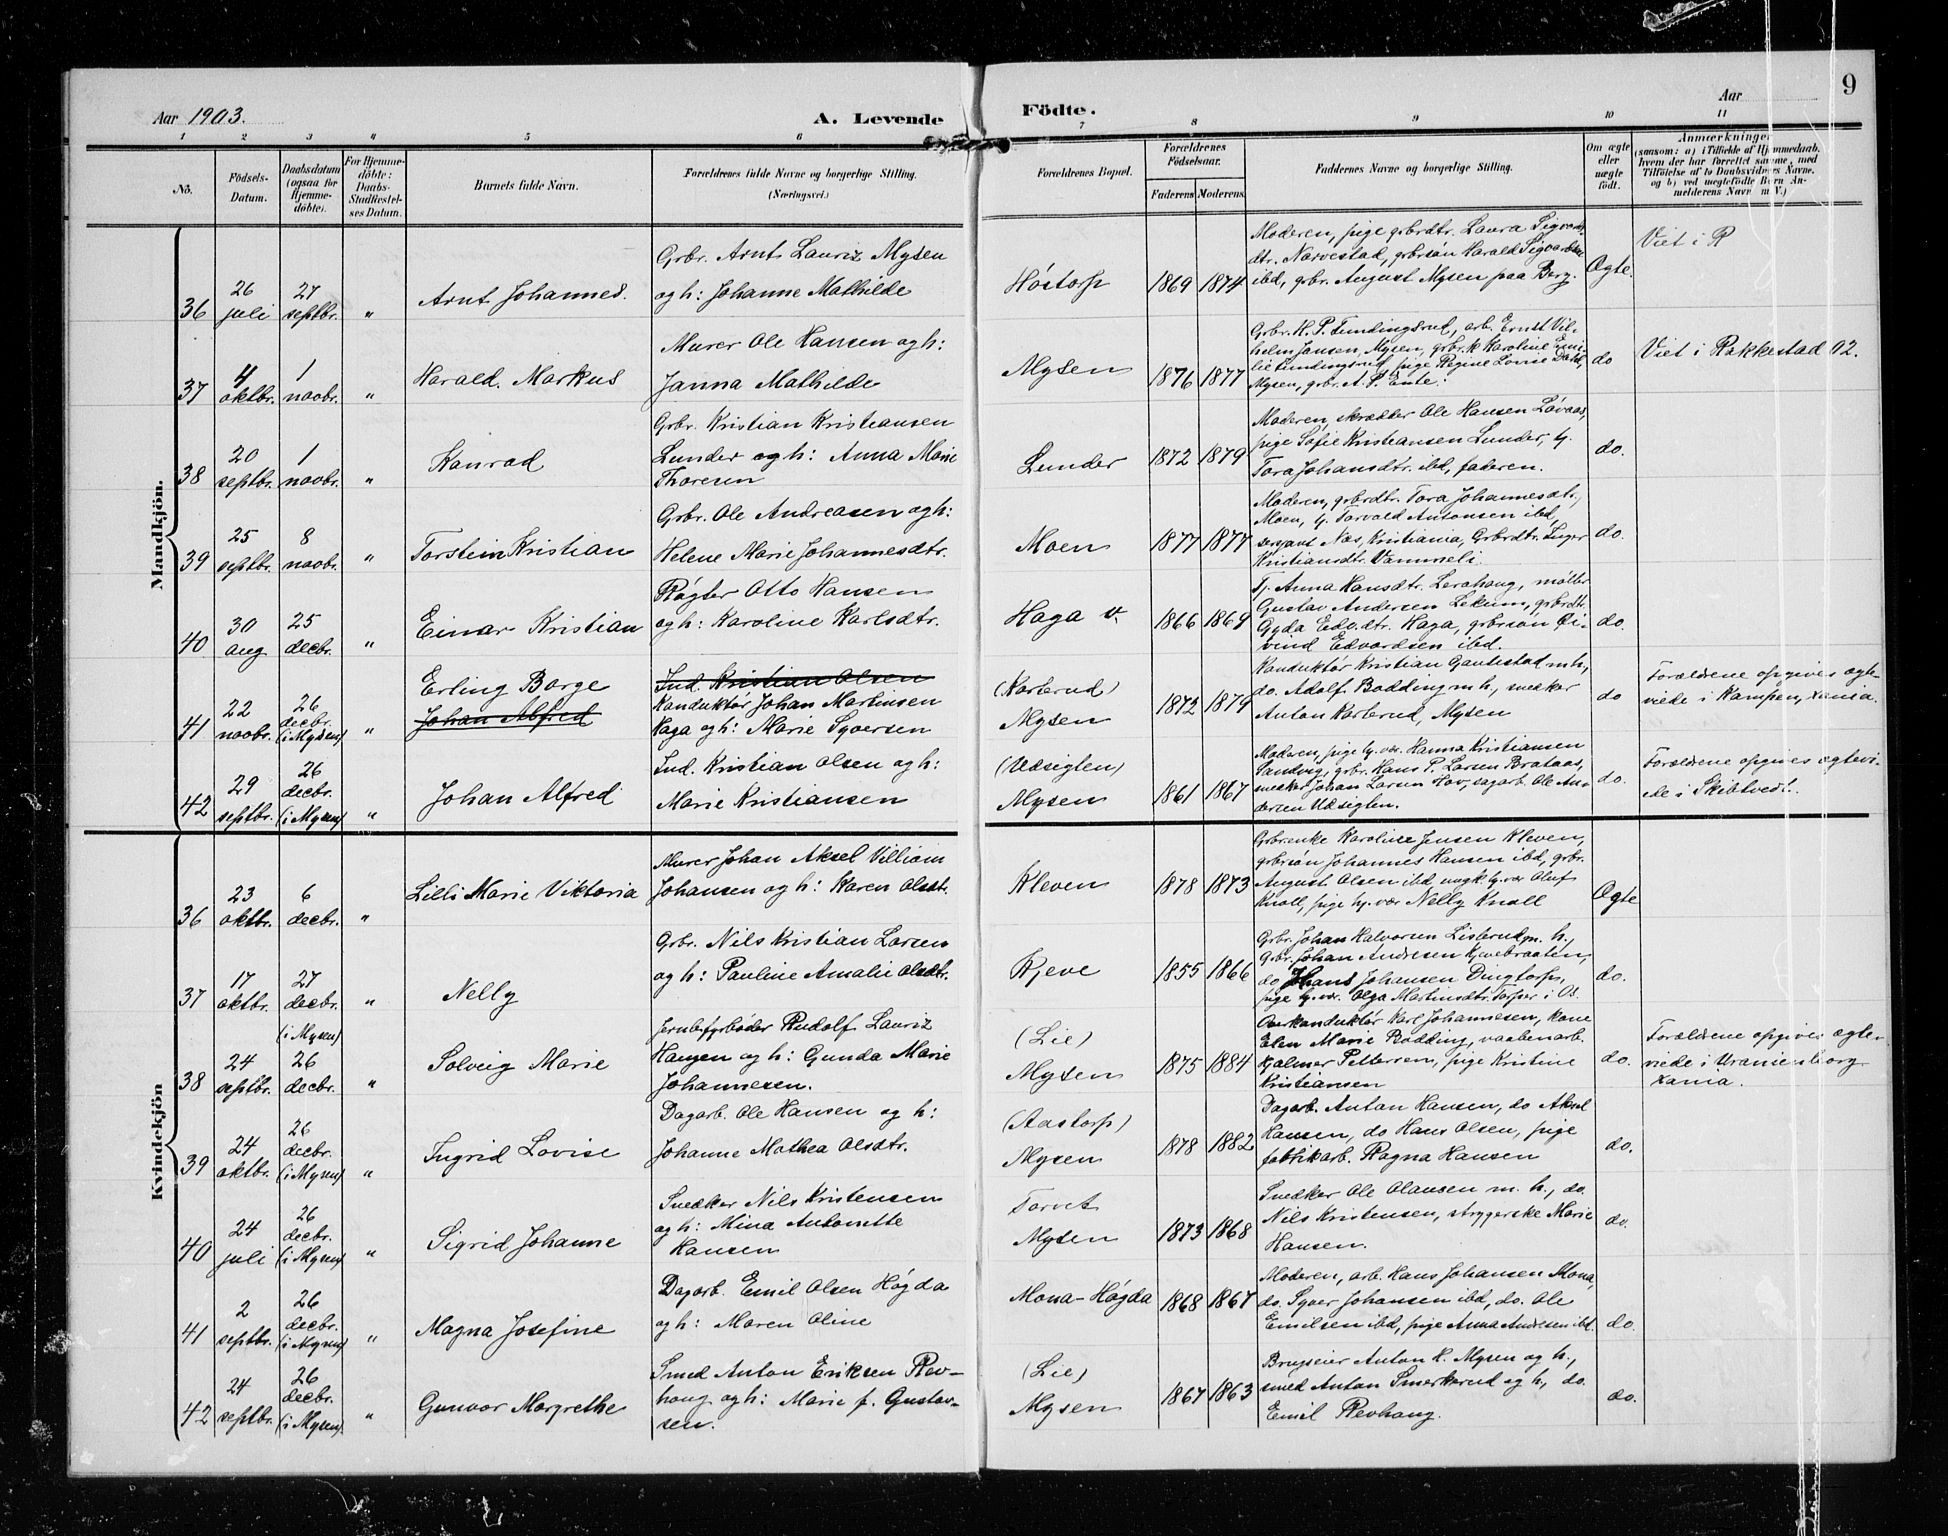 Aar 1903.
A. Levende
Födte.
Aar
9
1 2 3 4 5 6 7 8 9 10 11
No.
Födsels-
Datum.
Daabsdatum
(ogsaa for
Hjemme-
döbte).
For Hjemme-
döbte:
Daabs-
Stadfæstel-
ses Datum.
Barnets fulde Navn.
Forældrenes fulde Navne og borgerlige Stilling.
(Næringsvei.)
Forældrenes Bopæl.
Forældrenes
Födselsaar.
Faderens Moderens
Faddernes Navne og borgerlige Stilling.
Om ægte
eller
uægte
födt.
Anmærkninger
(saasom: a) i Tilfælde af Hjemmedaab,
hvem der har forrettet samme, med
Tilföielse af to Daabsvidners Navne,
og b) ved uægtefödte Börn An-
melderens Navn m. V.)
Mandkjön.
36
26
juli
27
septbr.
"
Arnt Johannes.
Grbr. Arnt Lauriz Mysen
og h: Johanne Mathilde
Höstorp
1869 1874
Moderen, pige grbrdtr. Laura Sigvards
dtr. Narvestad, grbrsön Harald Sigvardsen
ibd, grbr. August Mysen paa Berg.
Ægte.
Viet i R
37
4
oktbr.
1
novbr.
"
Harald Markus
Murer Ole Hansen og h:
Janna Mathilde
Mysen
1876 1877
Grbr. H. P. Fundingsrud, arb. Ernst Vil-
helm Jansen, Mysen, grbr.k Karoline Emi-
lie Fundingsrud, pige Regine Lovise Dahl,
Mysen, grbr. A. P. Ente.
do
Viet i Rakkestad 02.
38
20
septbr.
1
novbr.
"
Konrad
Grbr. Kristian Kristiansen
Lunder og h: Anna Marie
Thoresen
Lunder
1872 1879
Moderen, skrædder Ole Hansen Lövaas,
pige Sofie Kristiansen Lunder, tj.
Tora Johansdtr. ibd, faderen.
do.
39
25
septbr.
8
novbr.
"
Torstein Kristian
Grbr. Ole Andreasen og h:
Helene Marie Johannesdtr.
Moen
1877 1877
Moderen, grbrdtr. Tora Johannesdtr,
Moen, tj. Torvald Antonsen ibd,
serjant Næs, Kristiania, Grbrdtr. Inger
Kristiansdtr. Vammeli.
do.
40
30
aug
25
decbr.
"
Einar Kristian
Rögter Otto Hansen
og h: Karoline Karlsdtr.
Haga v.
1866 1869
Tj. Anna Hansdtr. Lerahaug, möller
Gustav Andersen Lekum, grbrdtr.
Gyda Edv.dtr. Haga, grbrsön Öi-
vind Edvardsen ibd.
do.
41
22
novbr.
26
decbr.
(i Mysen)
"
Erling Borge
Johan Alfred
Ind. Kristian Olsen
Konduktör Johan Martinsen
Haga og h: Marie Syversen
(Karlsrud)
Mysen
1872 1879
Konduktör Kristian Gautestad m h,
do. Adolf Bodding m h, snedker
Anton Karlsrud, Mysen
do
Forældrene opgives ægte-
viede i Kampen, Xania.
42
29
septbr.
26
decbr.
(i Mysen)
"
Johan Alfred
Ind. Kristian Olsen og h:
Marie Kristiansen
(Udsigten)
Mysen
1861 1867
Moderen, pige hj.vær. Hanna Kristiansen
Sandvig, grbr. Hans P. Larsen Brataas,
snedker Johan Larsen Hov, sagarb. Ole An-
dersen Udsigten.
do.
Forældrene opgives ægtevi-
ede i Skibtvedt.
Kvindekjön
36
23
oktbr.
6
decbr.
"
Lilli Marie Viktoria
Murer Johan Aksel Villiam
Johansen og h: Karen Olsdtr.
Kleven
1878 1873
Grbr.enke Karoline Jensen Kleven,
grbrsön Johannes Hansen ibd, grbr.
August Olsen ibd, ungk. hj.vær Oluf
Knoll, pige hj. vær Nelly Knoll
Ægte
37
17
oktbr.
27
decbr.
"
Nelly
Grbr. Nils Kristian Larsen
og h: Pauline Amalie Olsdtr.
Kjeve
1855 1866
Grbr. Johan Halvorsen Listerud m. h,
grbr. Johan Andresen Kjevebraaten,
do Hans Johansen Dingtorp,
pige hj.vær. Olga Martinsdtr. Torper i Os.
do.
38
24
septbr.
(i Mysen)
26
decbr.
"
Solveig Marie
Jernbfyrböder Rudolf Lauriz
Haugen og h: Gunda Marie
Johannesen.
(Lie)
Mysen
1875 1884
Overkonduktör Karl Johannesen, kone
Elen Marie Rodding, vaabenarb.
Hjalmer Pettersen, pige Kristine
Kristiansen
do.
Forældrene opgives ægte-
viede i Uranienborg
Xania.
39
24
oktbr.
26
decbr.
(i Mysen)
"
Ingrid Lovise
Dagarb. Ole Hansen og h:
Johanne Mathea Olsdtr.
(Aastorp)
Mysen
1878 1882
Dagarb. Anton Hansen, do Aksel
Hansen, do Hans Olsen, pige
fabrikarb. Ragna Hansen
do.
40
24
juli
26
decbr.
(i Mysen)
"
Sigrid Johanne
Snedker Nils Kristensen
og h: Mina Antonette
Hansen
Torvet
Mysen
1873 1868
Snedker Ole Olausen m. h., do.
Nils Kristensen, strygerske Marie
Hansen.
do.
41
2
septbr.
26
decbr.
(i Mysen)
"
Magna Josefine
Dagarb. Emil Olsen Högda
og h: Maren Oline
Mona-Högda
1868 1867
Moderen, arb. Hans Johansen Mona,
do. Syver Johansen ibd, do. Ole
Emilsen ibd, pige Anna Andresen ibd.
do.
42
24
septbr.
26
decbr.
(i Mysen)
"
Gunvor Margrethe
Smed Anton Eriksen Rev-
haug og h: Marie f. Gustav-
sen.
(Lie)
Mysen
1867 1863
Brugseier Anton K. Mysen og h.,
smed Anton Smerkerud og h, do.
Emil Revhaug.
do.